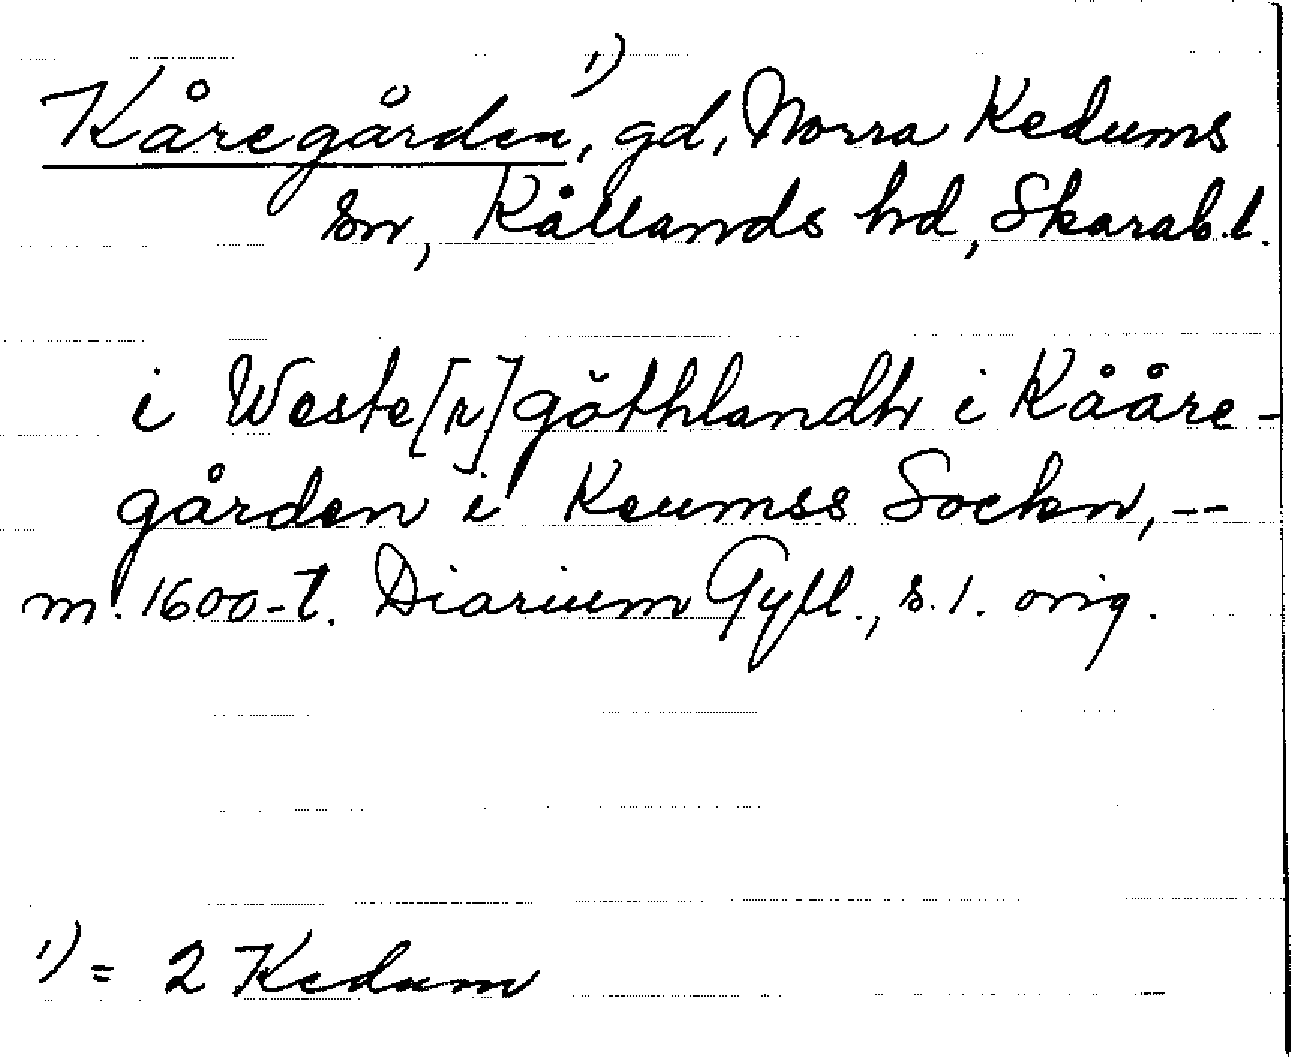 Kåregården,¹⁾ gd, Norra Kedums
sn, Kållands hd, Skarab.l.
i Weste[r]göthlandh i Kååre-
gården i Keumss Sockn, --
m. 1600-t. Diarium Gyll., s. 1. orig.
¹⁾ = 2 Kedum